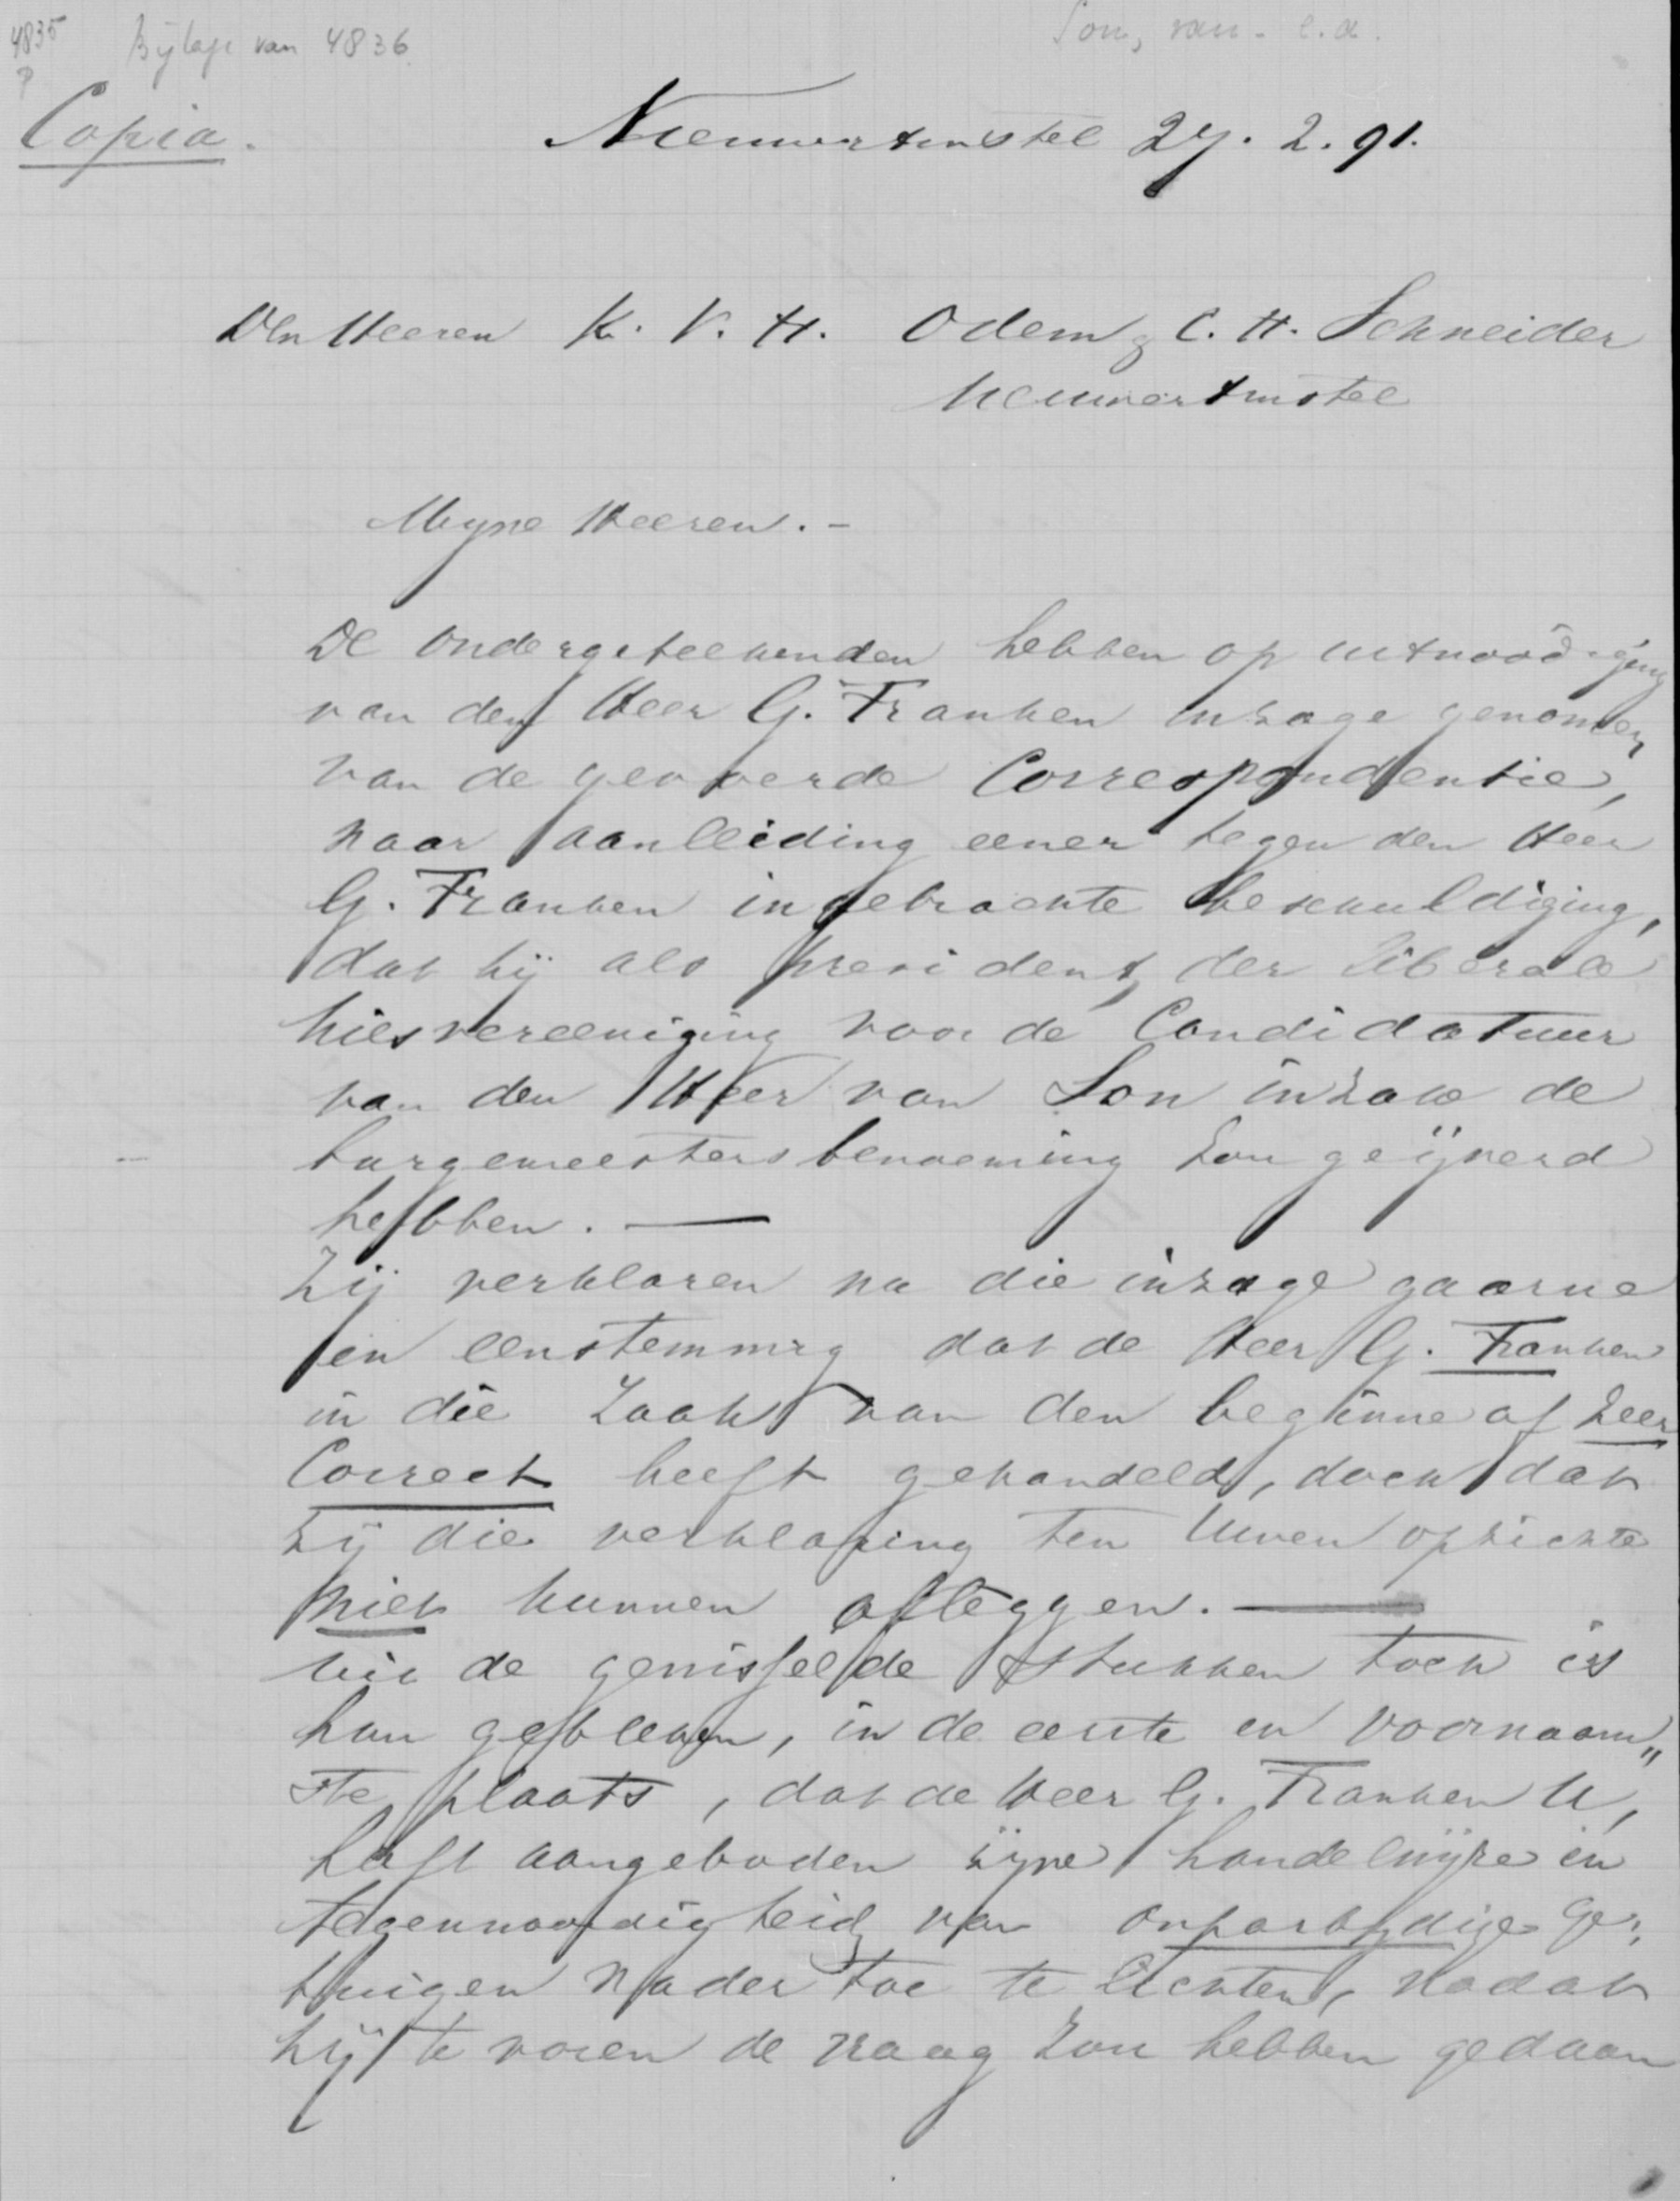 4835
Bijlage van 4836.
Son, van - e.a.
?
Copia.
Nieuweramstel 27. 2. 91.
Den Heeren K. V. H. Odem & C. H. Schneider
Nieuweramstel
Myne Heeren. -
De ondergeteekenden hebben op uitnoodiging
van den Heer G. Franken inzage genomen
van de gevoerde Correspondentie,
naar aanleiding eener tegen den Heer
G. Franken ingebrachte beschuldiging,
dat hij als president der liberale
kiesvereeniging voor de Candidatuur
van den Heer van Son inzake de
burgemeestersbenoeming zou geijverd
hebben. —
Zij verklaren na die inzage gaarne
en eenstemmig dat de Heer G. Franken
in die zaak van den beginne af zeer
Correct heeft gehandeld, doch dat
zij die verklaring ten Uwen opzichte
niet kunnen afleggen. —
Uit de gewisselde stukken toch is
hun gebleken, in de eerste en voornaam„
ste plaats, dat de Heer G. Franken U,
heeft aangeboden zijne handelwijze in
tegenwoordigheid van onpartijdige ge„
tuigen nader toe te lichten, nadat
hij te voren de vraag zou hebben gedaan